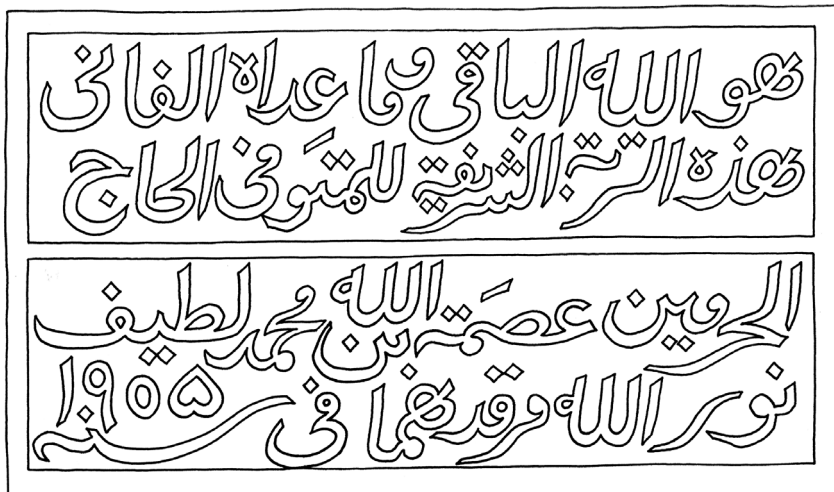 هو الله الباقي وما عداه الفانى
هذه التربة الشريفة للمتوفى الحاج
الحرمين عصمة الله بن محمد لطيف
نور الله مرقدهما في سنه ١٩٥٥